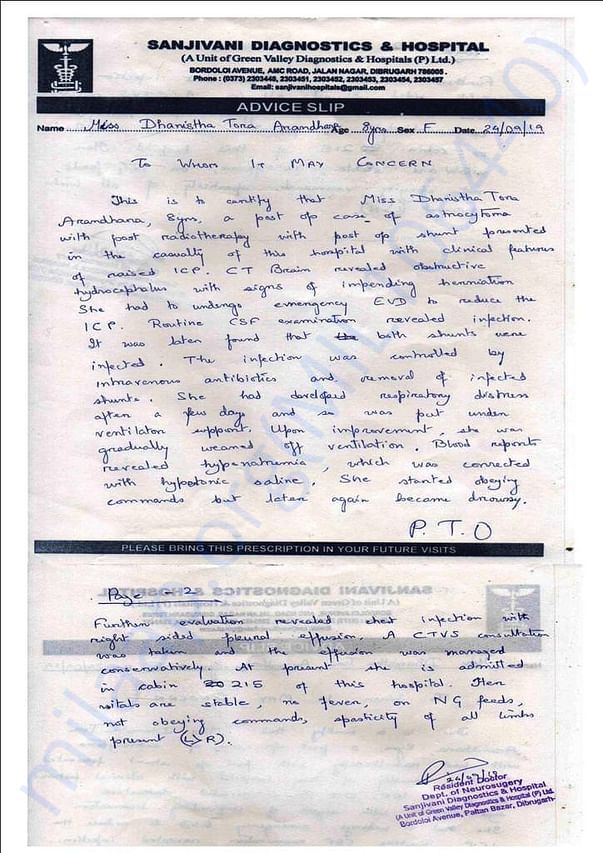 SANJIVANI DIAGNOSTICS & HOSPITAL
(A Unit of Green Valley Diagnostics & Hospitals (P) Ltd.)
BORDOLOI AVENUE, AMC ROAD, JALAN NAGAR, DIBRUGARH 786005.
Phone : (0373) 2303448, 2303451, 2303452, 2303453, 2303454, 2303457
Email: sanjivanihospitals@gmail.com
ADVICE SLIP
Name Miss Dhanistha Tora Arandhara Age 8yrs Sex F Date 24/09/19
To Whom It May Concern
This is to certify that Miss Dhanistha Tora
Arandhara, 8yrs, a post op case of astrocytoma
with post radiotherapy with post op shunt presented
in the casualty of this hospital with clinical features
of raised ICP. CT Brain revealed obstructive
hydrocephalus with signs of impending herniation
She had to undergo emergency EVD to reduce the
ICP. Routine CSF examination revealed infection.
It was later found that both shunts were
infected. The infection was controlled by
intravenous antibiotics and removal of infected
shunts. She had developed respiratory distress
after a few days and so was put under
ventilator support. Upon improvement, she was
gradually weaned off ventilation. Blood reports
revealed hypernatremia, which was corrected
with hypotonic saline. She started obeying
commands but later again became drowsy.
P.T.O
PLEASE BRING THIS PRESCRIPTION IN YOUR FUTURE VISITS
Page - 2
Further evaluation revealed chest infection with
right sided pleural effusion. A CTVS consultation
was taken and the effusion was managed
conservatively. At present she is admitted
in cabin 215 of this hospital. Her
vitals are stable, no fever, on NG feeds,
not obeying commands, spasticity of all limbs
present (L>R).
24/09/19
Resident Doctor
Dept. of Neurosugery
Sanjivani Diagnostics & Hospital
(A Unit of Green Valley Diagnostics & Hospital (P) Ltd.
Bordoloi Avenue, Paltan Bazar, Dibrugarh-